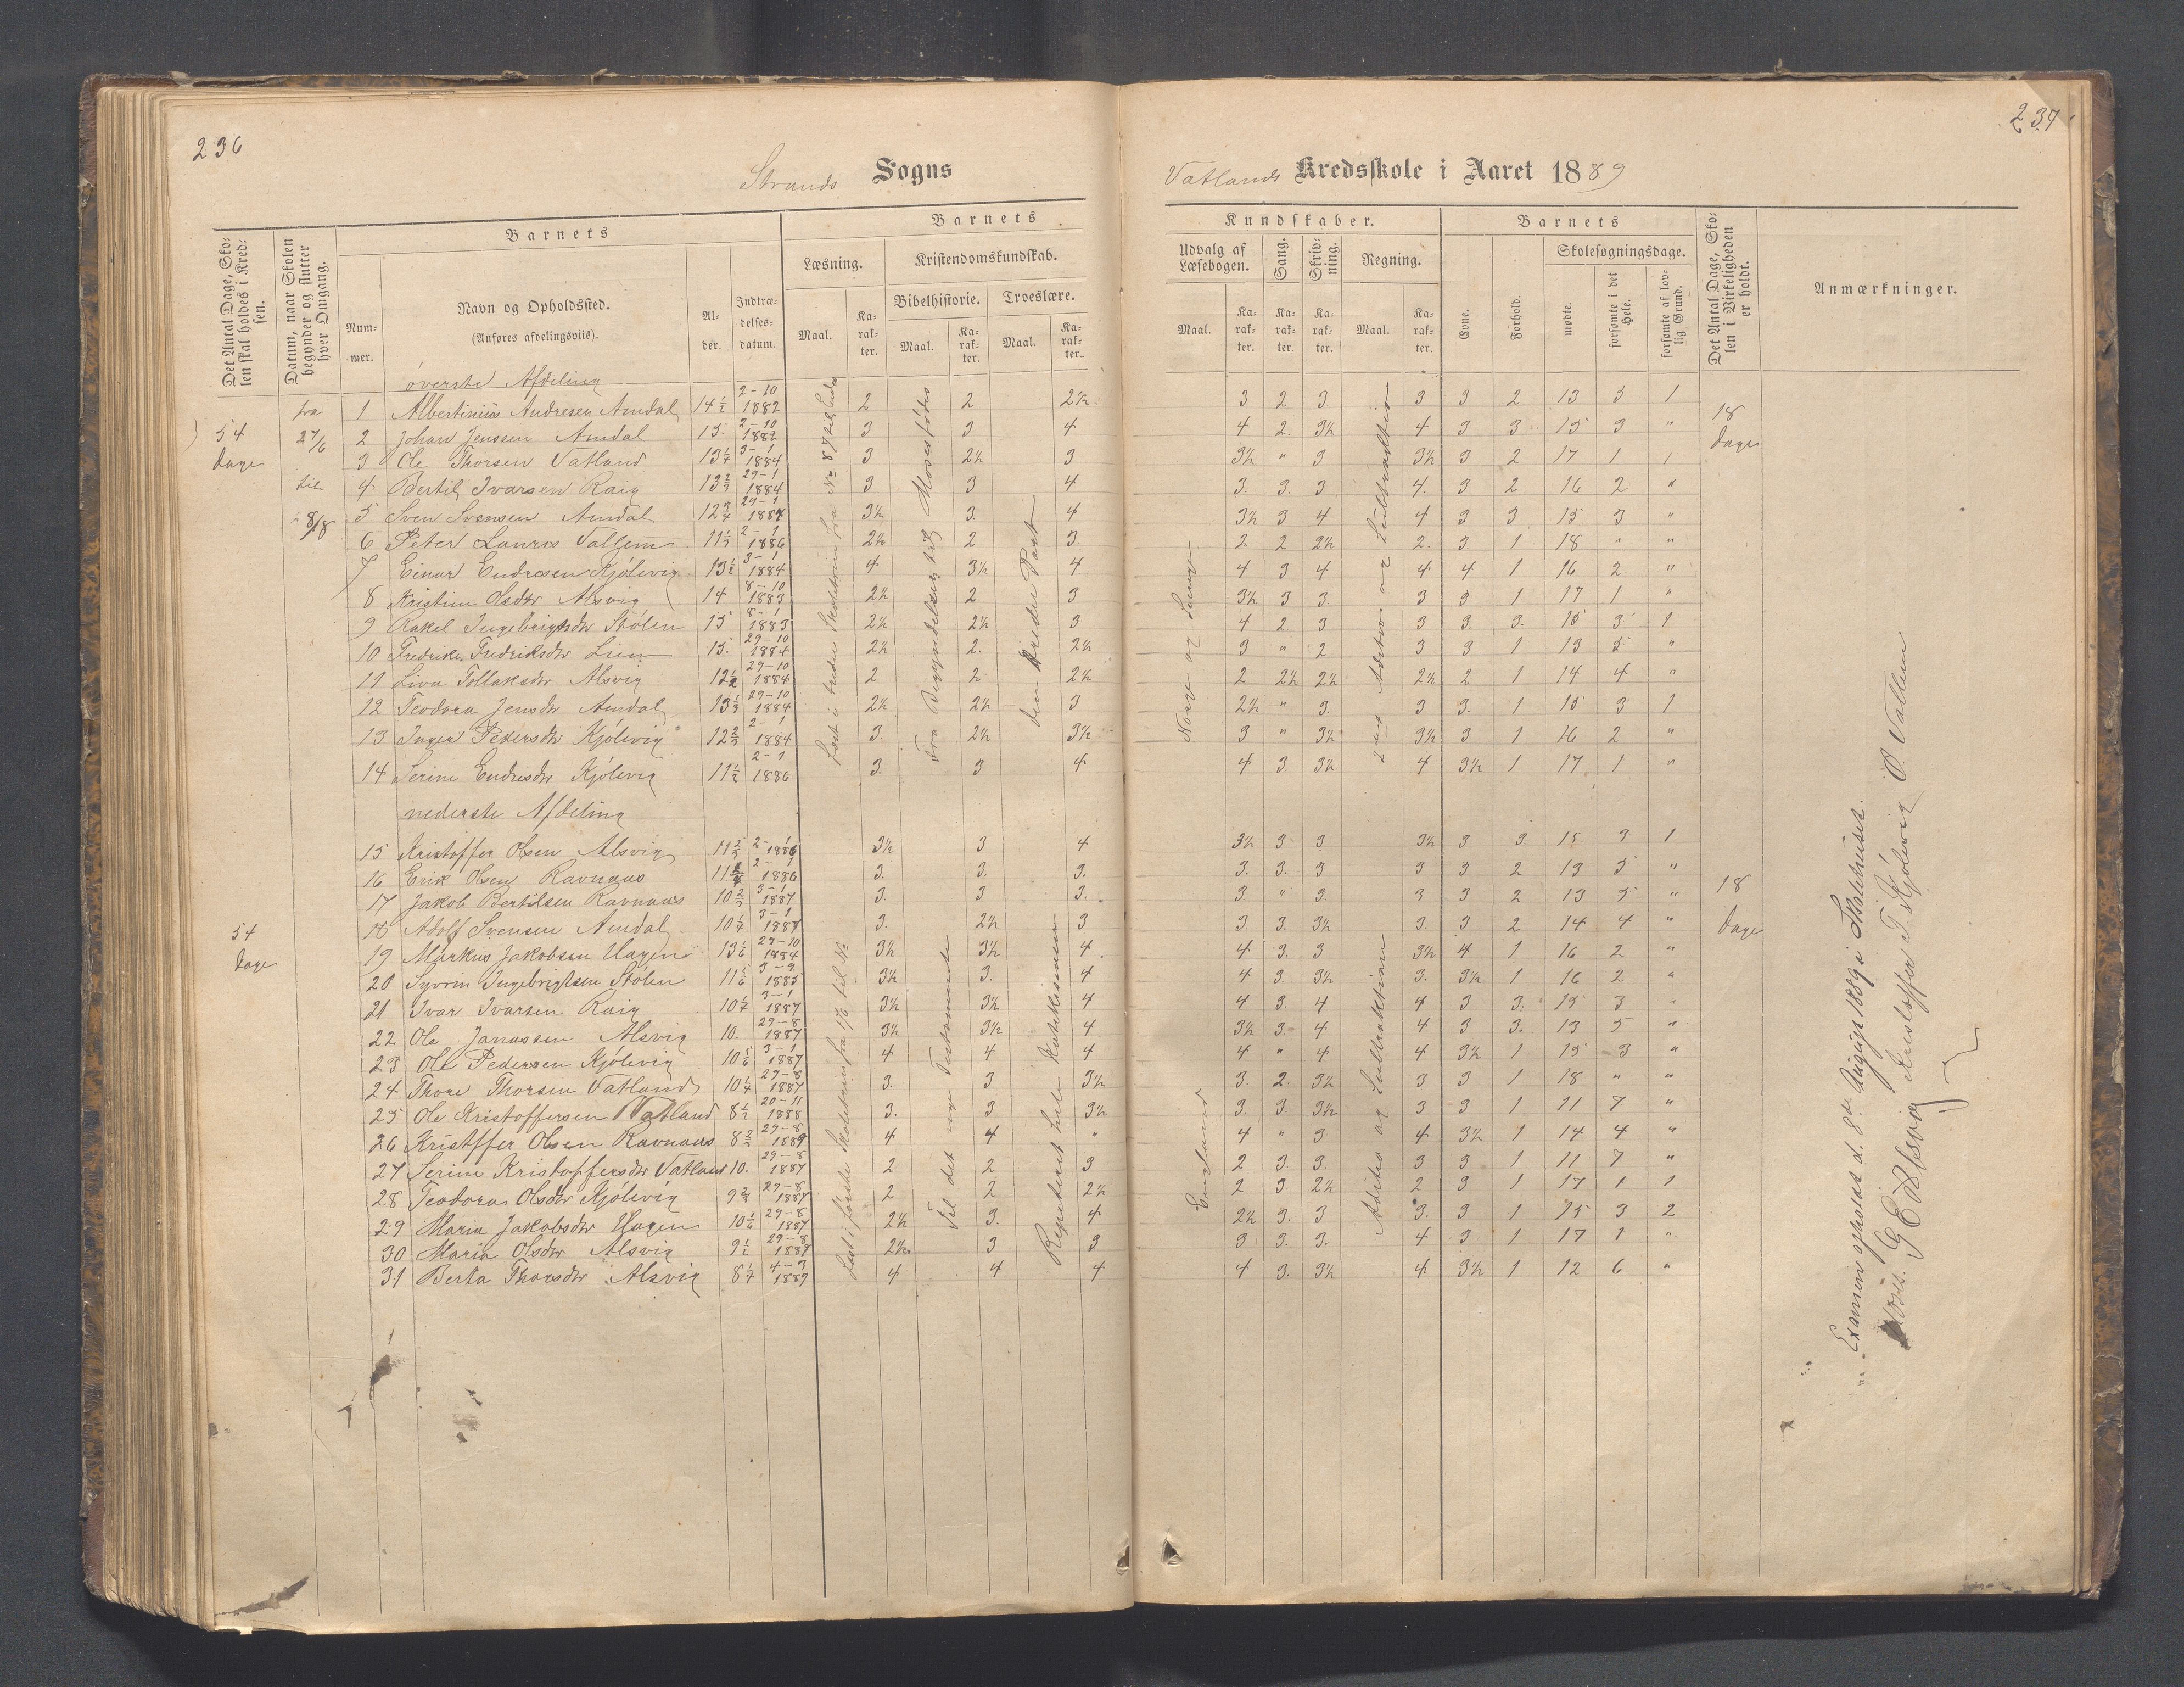 236
Strands Sogns
Det Antal Dage, Sko-
len skal holdes i Kred-
sen.
Datum, naar Skolen
begynder og slutter
hver Omgang.
Barnets
Num-
mer.
Navn og Opholdssted.
(Anføres afdelingsviis).
Al-
der.
Indtræ-
delses-
datum.
Barnets
Læsning.
Maal.
Ka-
rak-
ter.
Kristendomskundskab.
Bibelhistorie.
Maal.
Ka-
rak-
ter.
Troeslære.
Maal.
Ka-
rak-
ter.
øverste Afdeling
54
Dage
fra
27/6
til
8/8
1 Albertinius Andresen Amdal 14½ 2-10 1882 2 2 2½
2 Johan Jenssen Amdal 15. 2-10 1882 3 3 4
3 Ole Thorsen Vatland 13¼ 3-1 1884 3 2½ 3
4 Bertil Ivarsen Raig 13⅔ 29-1 1884 3 3 4
5 Sven Svensen Amdal 12¾ 29-1 1884 3½ 3. 4
6 Peter Laures Vallem 11⅓ 2-1 1886 2½ 2 3.
7 Einar Endresen Kjölevig 13½ 3-1 1884 4 3½ 4
8 Kristine Olsdtr Alsvig 14 8-10 1883 2½ 2 3
9 Rakel Ingebrigtsdtr Stölen 15 8-1 1883 2½ 2½ 3
10 Fredrike Fredriksdtr Lien 15. 29-10 1884 2½ 2. 2½
11 Liva Tollaksdtr Alsvig 12½ 29-10 1884 2 2 2½
12 Teodora Jensdtr Amdal 13⅓ 29-10 1884 2½ 2½ 3
13 Inger Pedersdtr Kjölevig 12⅔ 2-1 1884 3. 2½ 3½
14 Serine Endresdtr Kjölevig 11½ 2-1 1886 3. 3 4
Læst i tredie Skoletrin fra No 87 til Ende
Fra Begyndelsen til Moses födes
den tredie Part
nederste Afdeling
54
Dage
15 Kristoffer Olsen Alsvig 11⅔ 2-1 1886 3½ 3 4
16 Erik Olsen Ravnaas 2-1 1886 3. 3. 3.
17 Jakob Bertilsen Ravnaas 10⅔ 3-1 1887 3. 3 3.
18 Adolf Svensen Amdal 10¼ 3-1 1887 3. 2½ 3
19 Markus Jakobsen Hagen 13⅙ 29-10 1884 3½ 3½ 4.
20 Syvrin Ingebrigtsen Stölen 11⅚ 3-9 1885 3½ 3. 4
21 Ivar Ivarsen Raig 10¼ 3-1 1887 3½ 3½ 4
22 Ole Janassen Alsvig 10. 29-8 1887 3½ 3½ 4
23 Ole Pedersen Kjölevig 10⅚ 3-1 1887 4 4 4
24 Thore Thorsen Vatland 10¼ 29-8 1887 3. 3 3½
25 Ole Kristoffersen Vatland 8½ 20-11 1888 3. 3 3½
26 Kristffer Olsen Ravnaas 8⅔ 29-8 1889 4 4 "
27 Serine Kristoffersdtr Vatland 10. 29-8 1887 2 2 3
28 Teodora Olsdtr Kjölevig 9⅔ 29-8 1887 2 2 2½
29 Maria Jakobsdtr Hagen 10⅙ 29-8 1887 2½ 3. 4
30 Maria Olsdtr Alsvig 9½ 29-8 1887 2½ 3 3
31 Berta Thorsdtr Alsvig 8¼ 4-3 1889 4 4 4
Læst i förste Skoletrin fra 176 til No
Til det nye Testamente
Repeteret hele Katekismen
237
Vatlands Kredsskole i Aaret 1889
Kundskaber.
Udvalg af
Læsebogen.
Maal.
Ka-
rak-
ter.
Sang.
Ka-
rak-
ter.
Skriv-
ning.
Ka-
rak-
ter.
Regning.
Maal.
Ka-
rak-
ter.
Barnets
Evne.
Forhold.
Skolesøgningsdage.
mødte.
forsømte i det
Hele.
forsømte af lov-
lig Grund.
Det Antal Dage, Sko-
len i Virkeligheden
er holdt.
Anmærkninger.
3 2 3 3 3 2 13 5 1
4 2. 3½ 4 3 3 15 3 "
3½ " 3 3½ 3 2 17 1 1
3. 3. 3 4. 3 2 16 2 "
3½ 3 4 4 3 3 15 3 "
2 2 2½ 2. 3 1 18 " "
4 3 4 4 4 1 16 2 "
3½ 3 3. 3 3 1 17 1 "
4 2. 3 3 3. 3. 15 3 1
3 " 2 3 3 1 13 5 "
2 2½ 2½ 2½ 2 1 14 4 "
2½ " 3. 3 3. 1 15 3 1
3 " 3½ 3½ 3 1 16 2 "
4 3. 3½ 4 3½ 1 17 1 "
18
Dage
3½ 3 3 3½ 3 3. 15 3 1
3. 3. 3 3 3 2 13 5 "
3. " 3. 3 3 2 13 5 "
3. 3. 3½ 3. 3 2 14 4 "
4 3. 3 3½ 4 1 16 2 "
4 3. 3½ 3. 3½ 1 16 2 "
4 3. 4 4 3 3. 15 3 "
3½ 3. 4 4 3 3. 13 5 "
4 " 4 4 3½ 1 15 3 "
3. 2. 3½ 3 3 1 18 " "
3. 3. 3½ 3 3 1 11 7 "
4 " 3 4 3½ 1 14 4 "
2 3. 3. 3 3 1 11 7 "
2 3. 2½ 2 3 1 17 1 1
2½ 3. 3 3. 3 1 15 3 2
3 3. 3. 4 3 1 17 1 "
4 3. 3½ 4 3½ 1 12 6 "
18
Dage
Norge og
Addition og Subtraktion
Examen opholdt d. 8de August 1889 i Skolehuset.
G E Alsvig Kristoffer T. Kjölevig P. Vallem